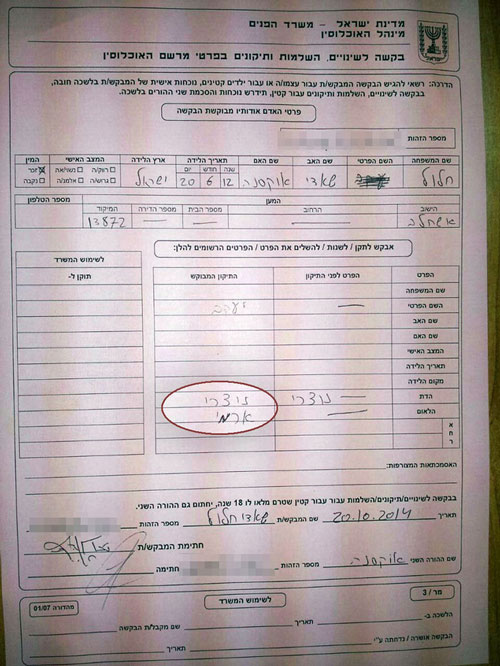 מדינת ישראל – משרד הפנים
מינהל האוכלוסין
בקשה לשינויים, השלמות ותיקונים בפרטי מרשם האוכלוסין
הדרכה: רשאי להגיש הבקשה המבקש/ת עבור עצמו/ה או עבור ילדים קטינים, נוכחות אישית של המבקש/ת בלשכה חובה,
בבקשה לשינויים, השלמות ותיקונים עבור קטין, תידרש נוכחות והסכמת שני ההורים בלשכה.
פרטי האדם אודותיו מבוקשת הבקשה
מספר הזהות
שם המשפחה השם הפרטי שם האב שם האם תאריך הלידה ארץ הלידה המצב האישי המין
שנה חודש יום
חלול שאדי אוקסנה 12 6 20 ישראל רווק/ה נשוי/אה גרוש/ה אלמנ/ה זכר נקבה
המען מספר הטלפון
הישוב הרחוב מספר הבית מספר הדירה המיקוד
— — — 13872
אבקש לתקן / לשנות / להשלים את הפרט / הפרטים הרשומים להלן:
לשימוש המשרד
הפרט הפרט לפני התיקון התיקון המבוקש תוקן ל-
שם המשפחה
השם הפרטי — יעקב
שם האב
שם האם
המצב האישי
תאריך הלידה
מקום הלידה
הדת נוצרי נוצרי
הלאום — ארמי
א
ח
ר
האסמכתאות המצורפות:
בבקשה לשינויים/תיקונים/השלמות עבור קטין שטרם מלאו לו 18 שנה, יחתום גם ההורה השני.
תאריך 20.10.2014 שם המבקש/ת שאדי חלול מספר הזהות
חתימת המבקש/ת
שם ההורה השני אוקסנה מספר הזהות חתימה
מר / 3
לשימוש המשרד
מהדורה 01/07
הלשכה ב- שם מקבל/ת הבקשה
הבקשה אושרה / נדחתה ע"י